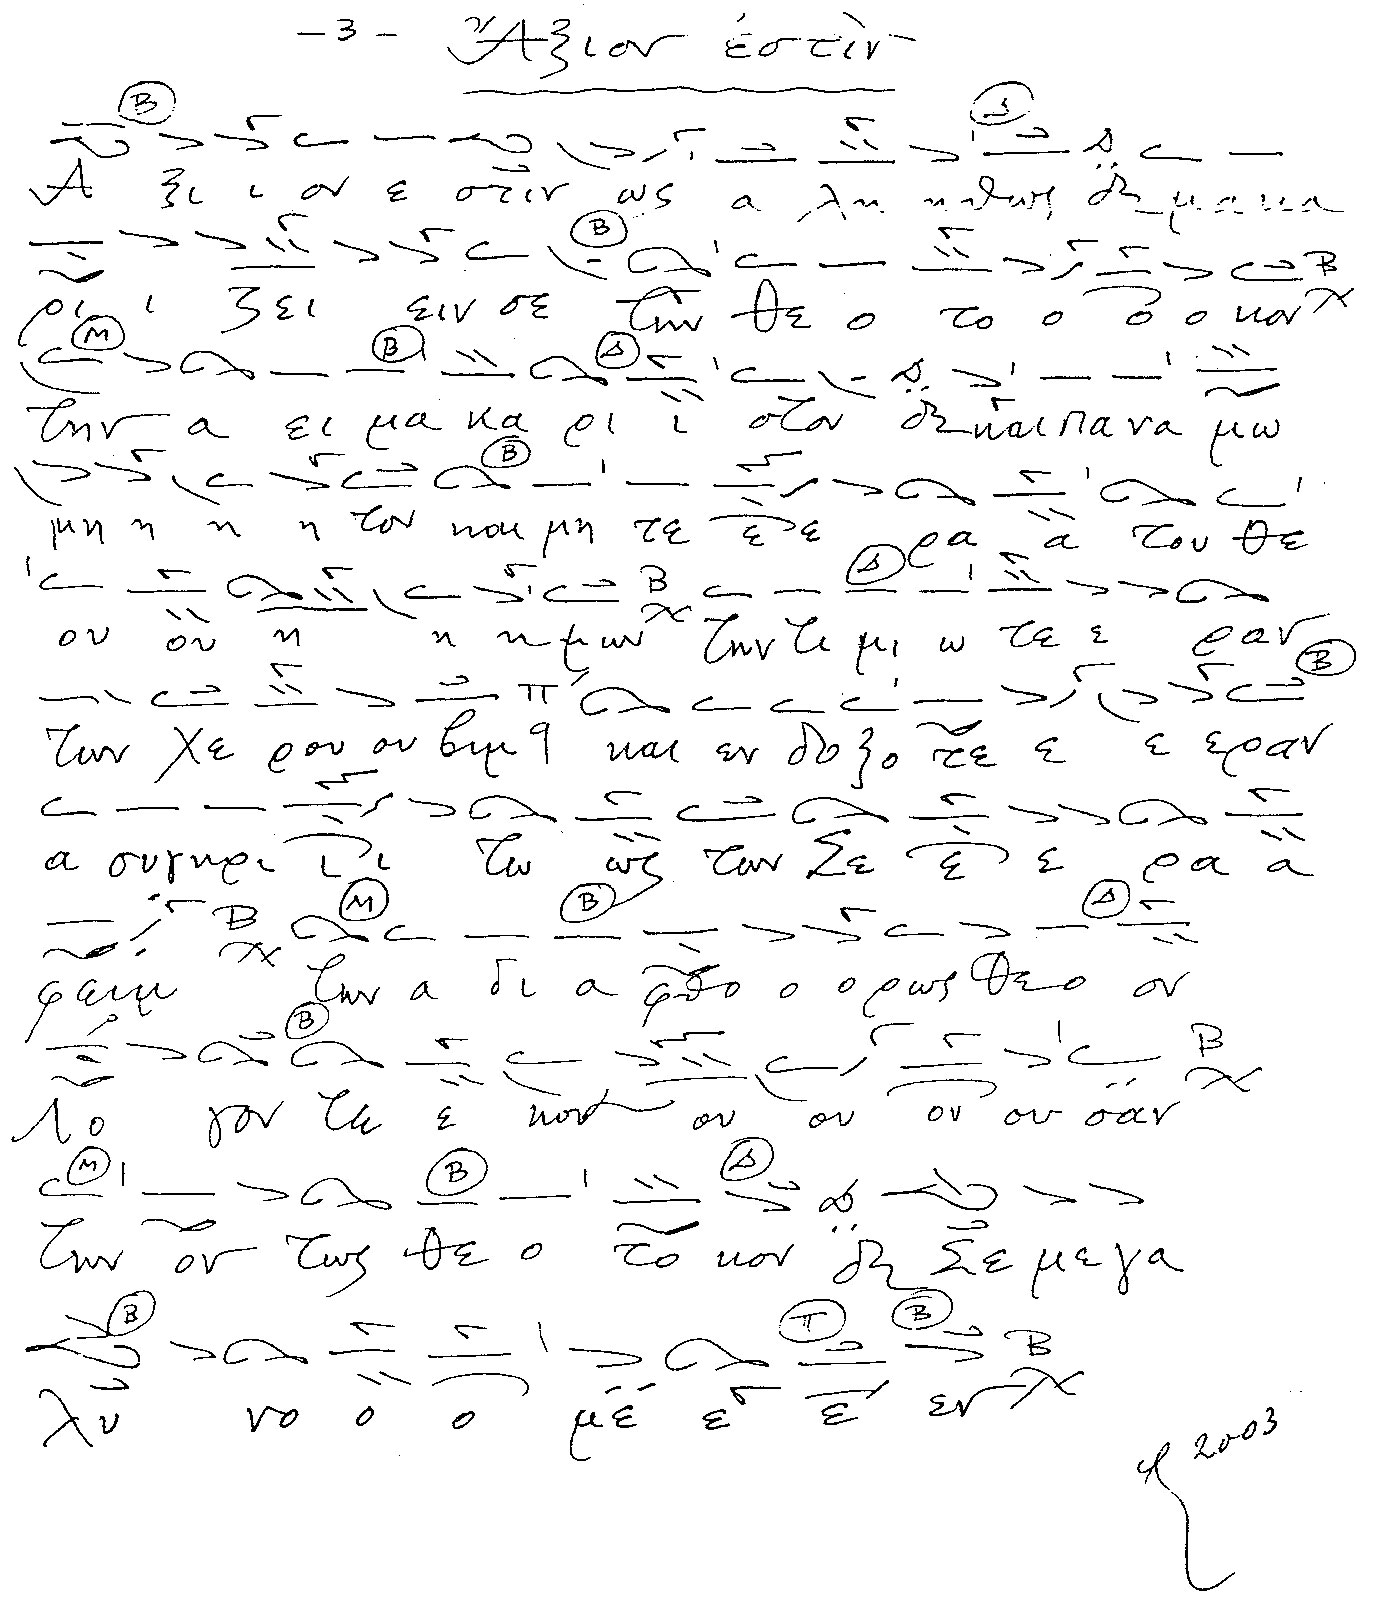 - 3 - Ἄξιον ἐστὶν
Α ξι ι ον ε στιν ως α λη η θως μα κα
ρι ι ζει ειν σε την θε ο το ο ο ο κον
την α ει μα κα ρι ι στον και πα να μω
μη η η η τον και μη τε ε ε ρα α του θε
ου ου η η η μων την τι μι ω τε ε ραν
των χε ρου ου βιμ και εν δο ξο τε ε ε ε ραν
α συγ κρι ι ι τω ως των Σε ε ε ρα α
φειμ την α δι α φθο ο ο ρως θε ο ον
Λο γον τε ε κου ου ου ου ου σαν
την ον τως θε ο το κον Σε με γα
λυ νο ο ο με ε ε εν
2003